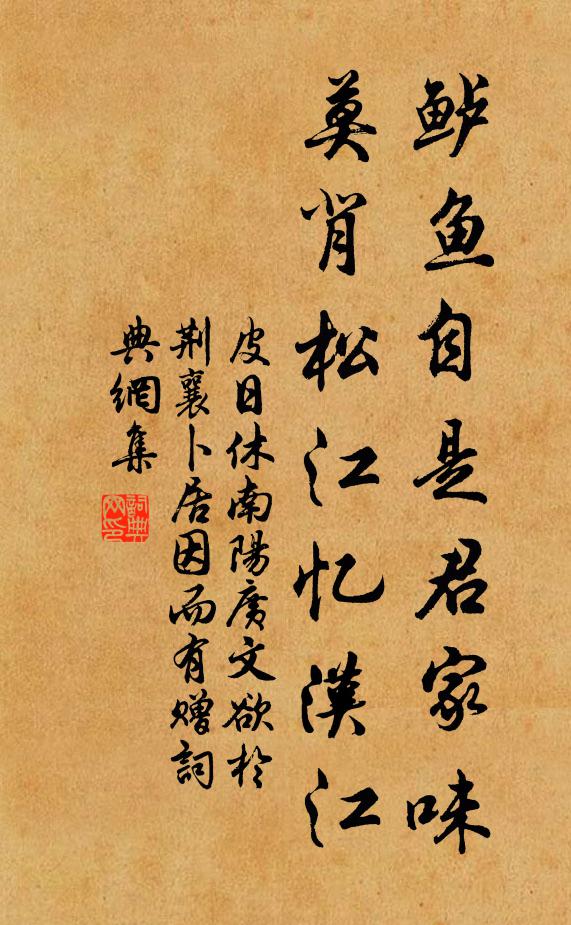 鲈鱼自是君家味
莫背松江忆漢江
皮日休南陽廣文欲於
荆襄卜居因而有赠詞
典網集
詞典
网印